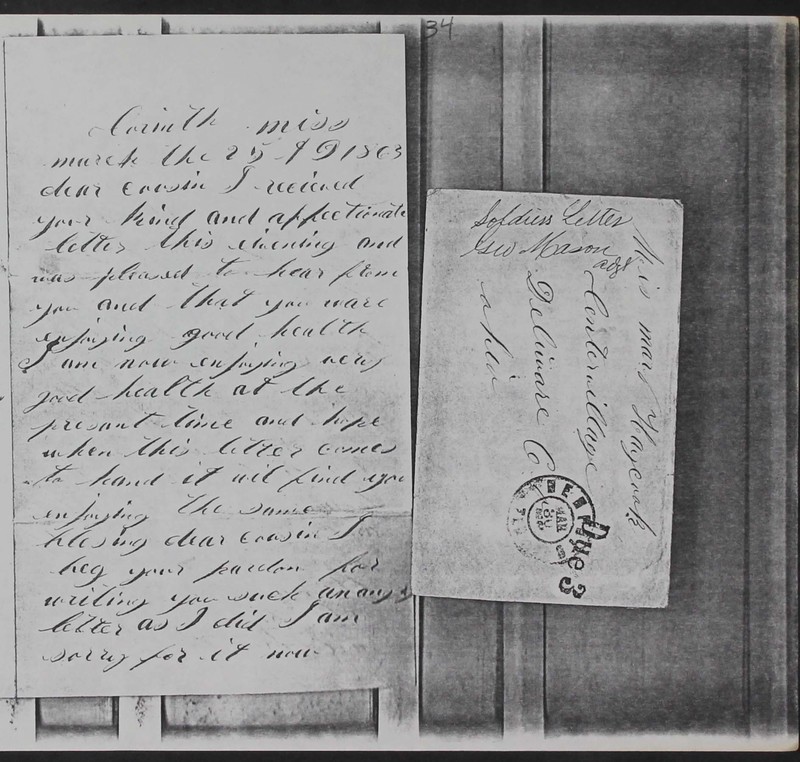 34
Corinth miss
march the 25 AD 1863
dear cousin I recieved
your kind and affectionate
letter this evening and
was pleased to hear from
you and that you ware
enjoying good health
I am now enjoying very
good health at the
present time and hope
when this letter comes
to hand it wil find you
enjoying the same
blesing dear cousin I
beg your pardon for
writing you such an angry
letter as I did I am
sorry for it now
Soldiers Letter
Geo Mason
adjt
Miss mary Haycook
Centervillage
Deliware Co
ohio
MEMPHIS
MAR
Due 3